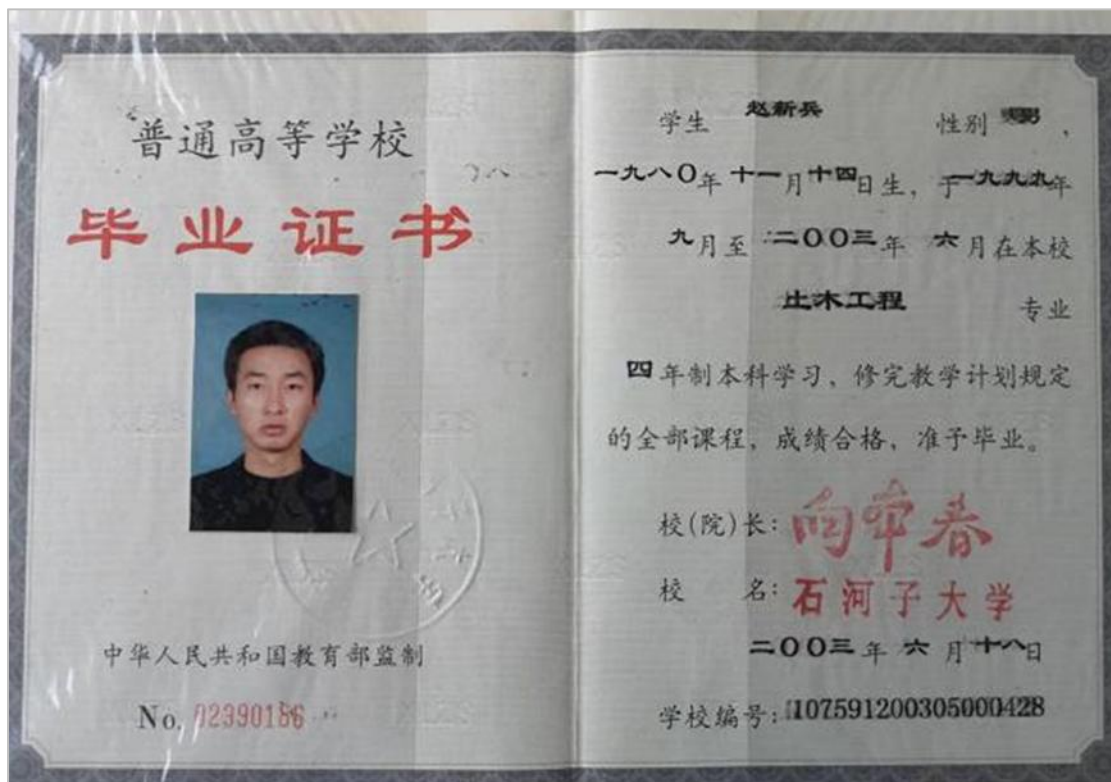 普通高等学校
毕业证书
中华人民共和国教育部监制
No. 02390186
学生 赵新兵 性别 男，
一九八〇年十一月十四日生，于一九九九年
九月至二〇〇三年六月在本校
土木工程 专业
四年制本科学习，修完教学计划规定
的全部课程，成绩合格，准予毕业。
校(院)长：向本春
校 名：石河子大学
二〇〇三年六月十八日
学校编号：107591200305000428